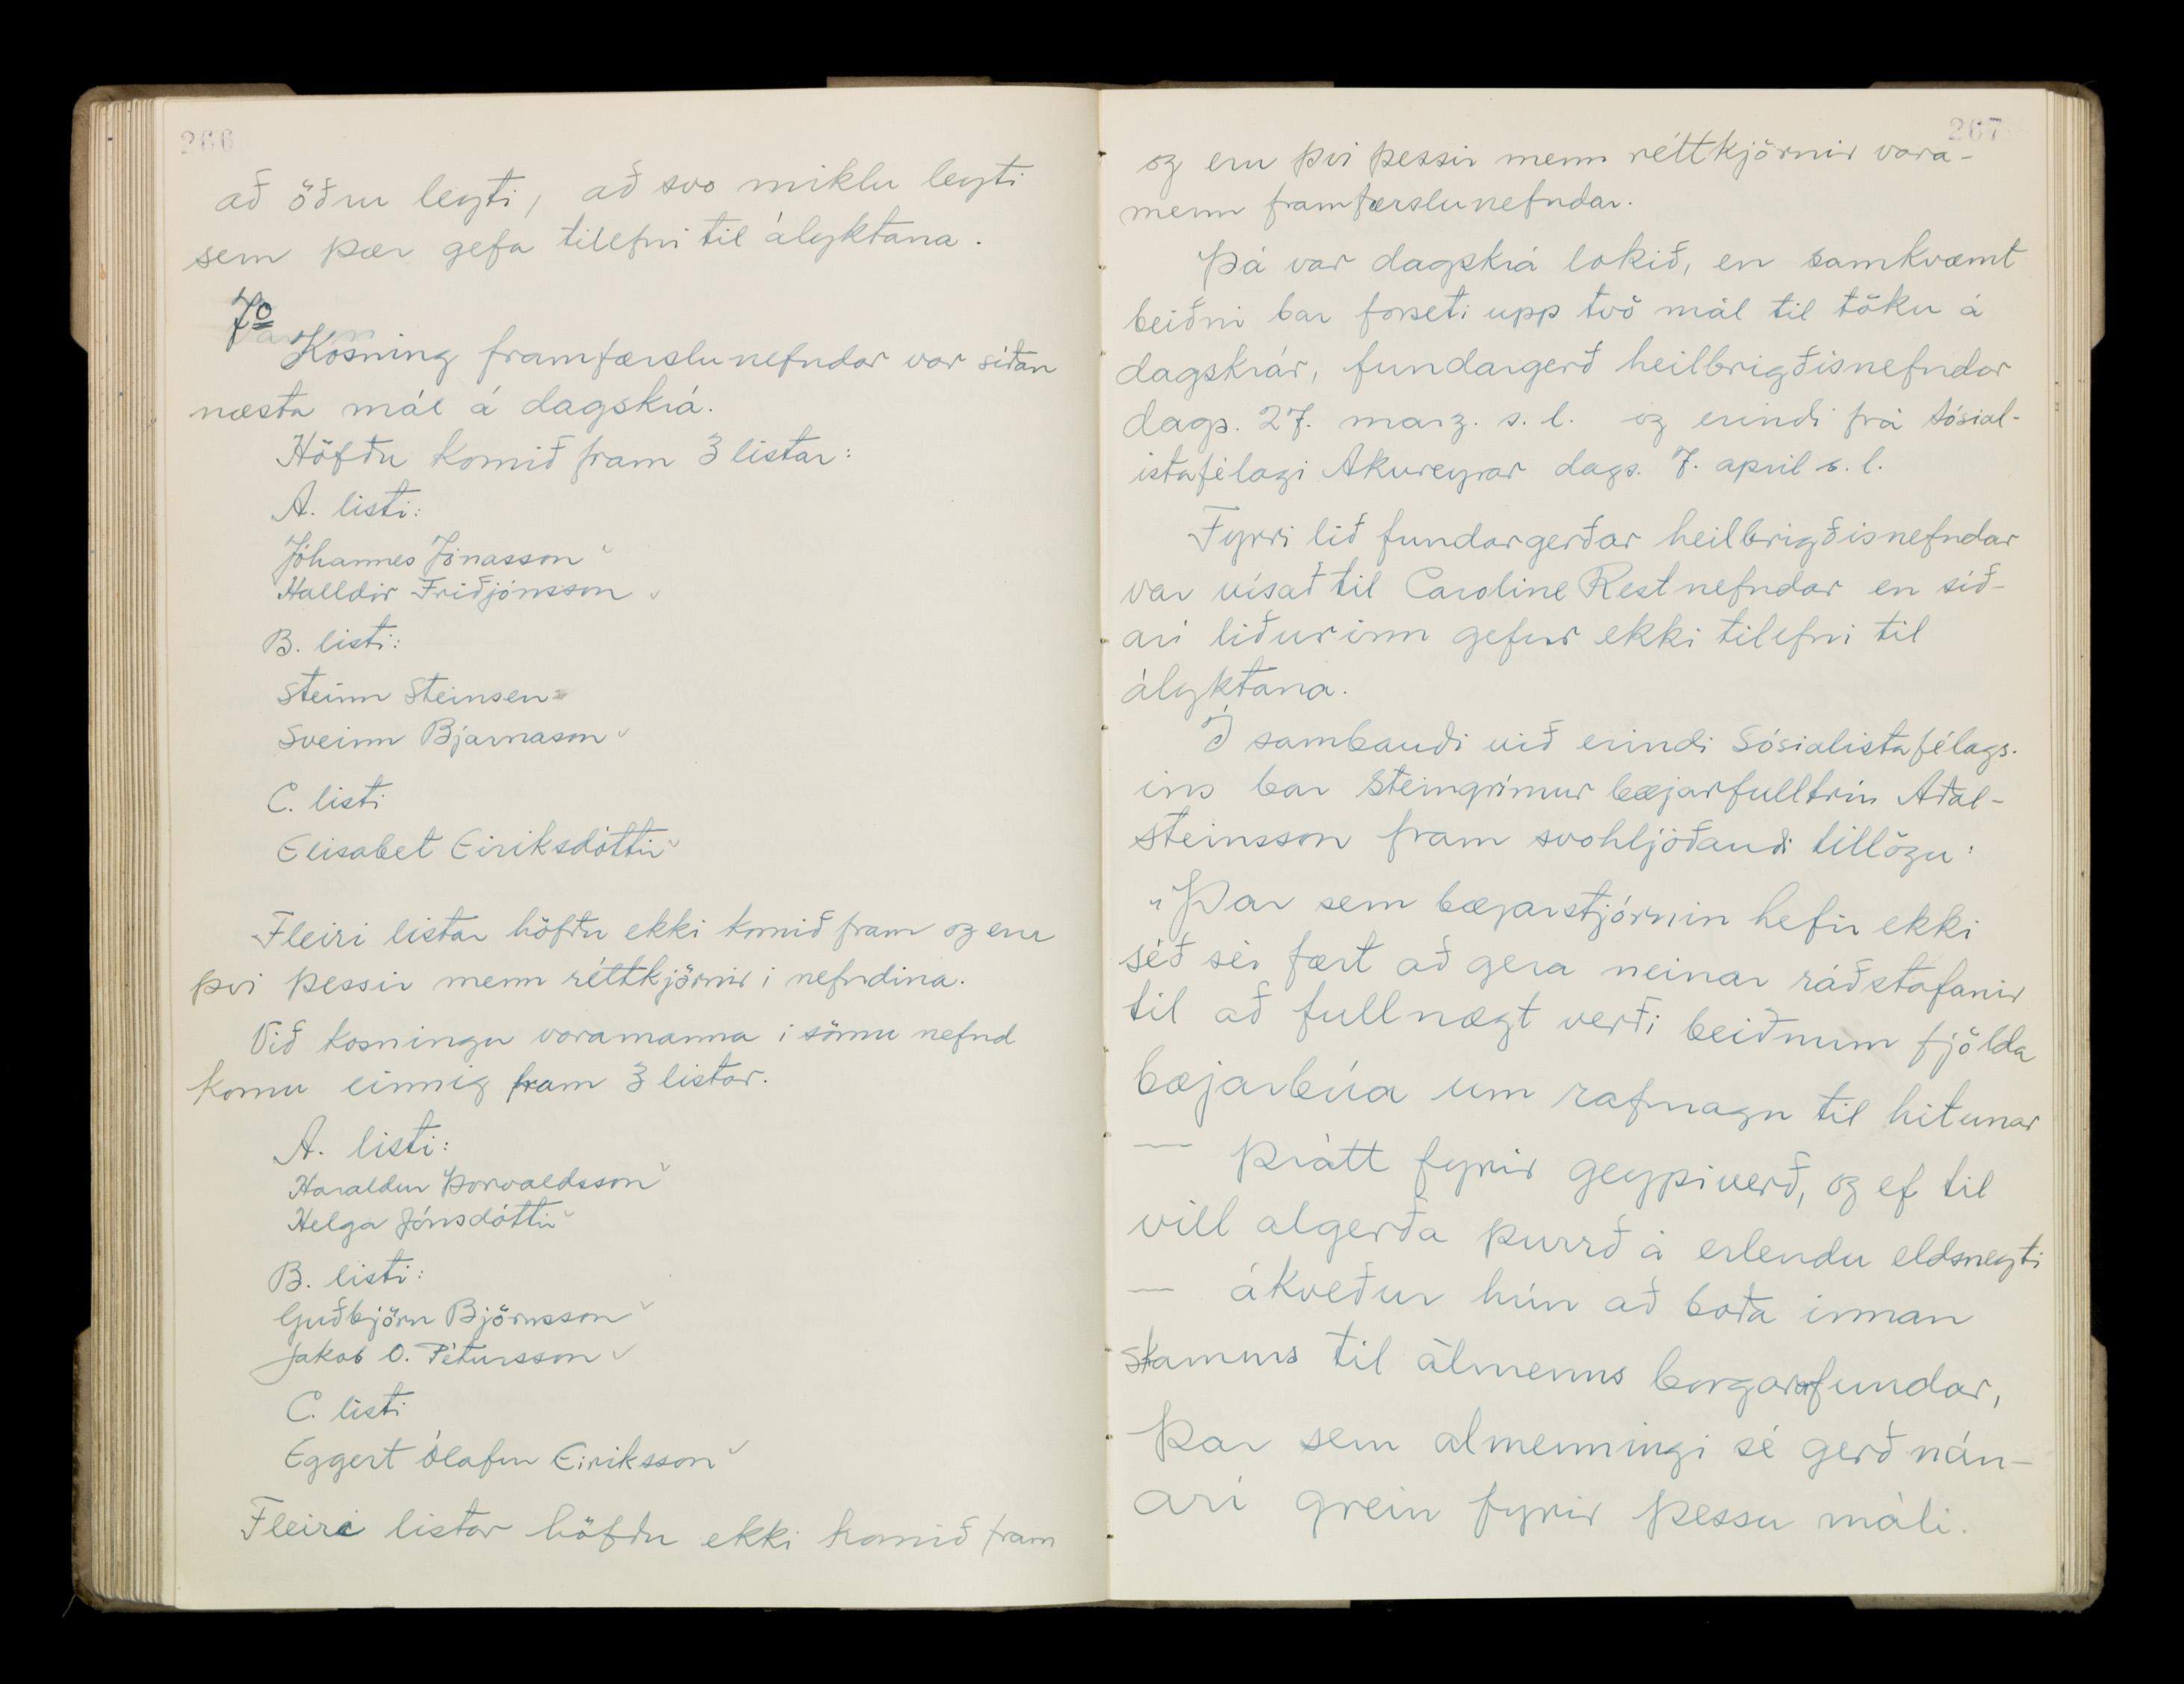 266
að öðru leyti, að svo miklu leyti
sem þær gefa tilefni til ályktana.
7º
Kosning framfærslunefndar var síðan
næsta mál á dagskrá.
Höfðu komið fram 3 listar:
A. listi:
Jóhannes Jónasson
Halldór Friðjónsson
B. listi:
Steinn Steinsen
Sveinn Bjarnason
C. listi
Elísabet Eiríksdóttir
Fleiri listar höfðu ekki komið fram og eru
því þessir menn réttkjörnir í nefndina.
Við kosningu varamanna í sömu nefnd
komu einnig fram 3 listar.
A. listi:
Haraldur Þorvaldsson
Helga Jónsdóttir
B. listi:
Guðbjörn Björnsson
Jakob O. Pétursson
C. listi
Eggert Ólafur Eiríksson
Fleiri listar höfðu ekki komið fram
267
og eru því þessir menn réttkjörnir vara-
menn framfærslunefndar.
Þá var dagskrá lokið, en samkvæmt
beiðni bar forseti upp tvö mál til töku á
dagskrár, fundargerð heilbrigðisnefndar
dags. 27. marz. s. l. og erindi frá Sósial-
istafélagi Akureyrar dags. 7. apríl s. l.
Fyrri lið fundargerðar heilbrigðisnefndar
var vísað til Caroline Rest nefndar en síð-
ari liðurinn gefur ekki tilefni til
ályktana.
Í sambandi við erindi Sósialistafélags-
ins bar Steingrímur bæjarfulltrúi Aðal-
steinsson fram svohljóðandi tillögu:
"Þar sem bæjarstjórnin hefir ekki
séð sér fært að gera neinar ráðstafanir
til að fullnægt verði beiðnum fjölda
bæjarbúa um rafmagn til hitunar
— þrátt fyrir geypiverð, og ef til
vill algerða þurrð á erlendu eldsneyti
— ákveður hún að boða innan
skamms til almenns borgarafundar,
þar sem almenningi sé gerð nán-
ari grein fyrir þessu máli.